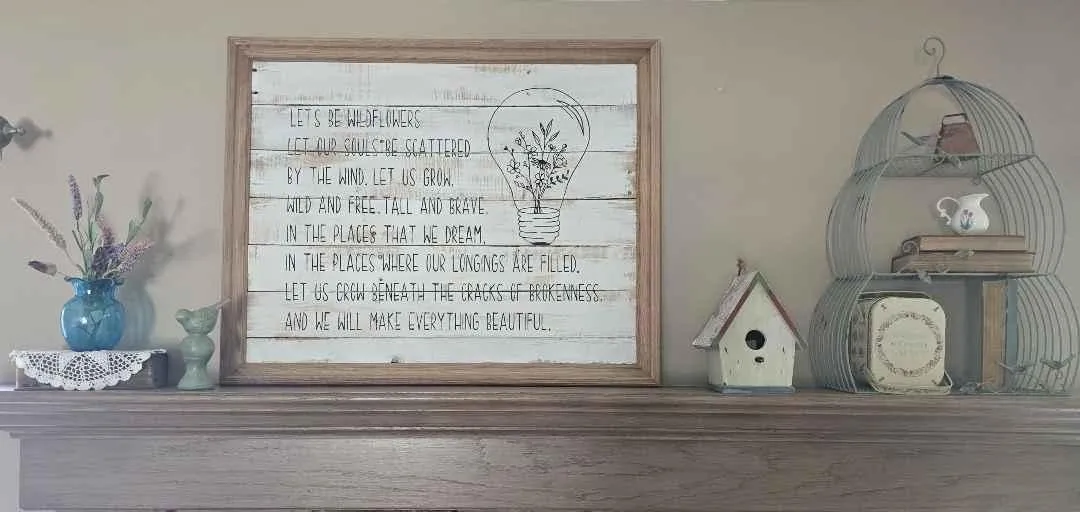 LET'S BE WILDFLOWERS
LET OUR SOULS BE SCATTERED
BY THE WIND. LET US GROW,
WILD AND FREE. TALL AND BRAVE.
IN THE PLACES THAT WE DREAM,
IN THE PLACES WHERE OUR LONGINGS ARE FILLED.
LET US GROW BENEATH THE CRACKS OF BROKENNESS.
AND WE WILL MAKE EVERYTHING BEAUTIFUL.